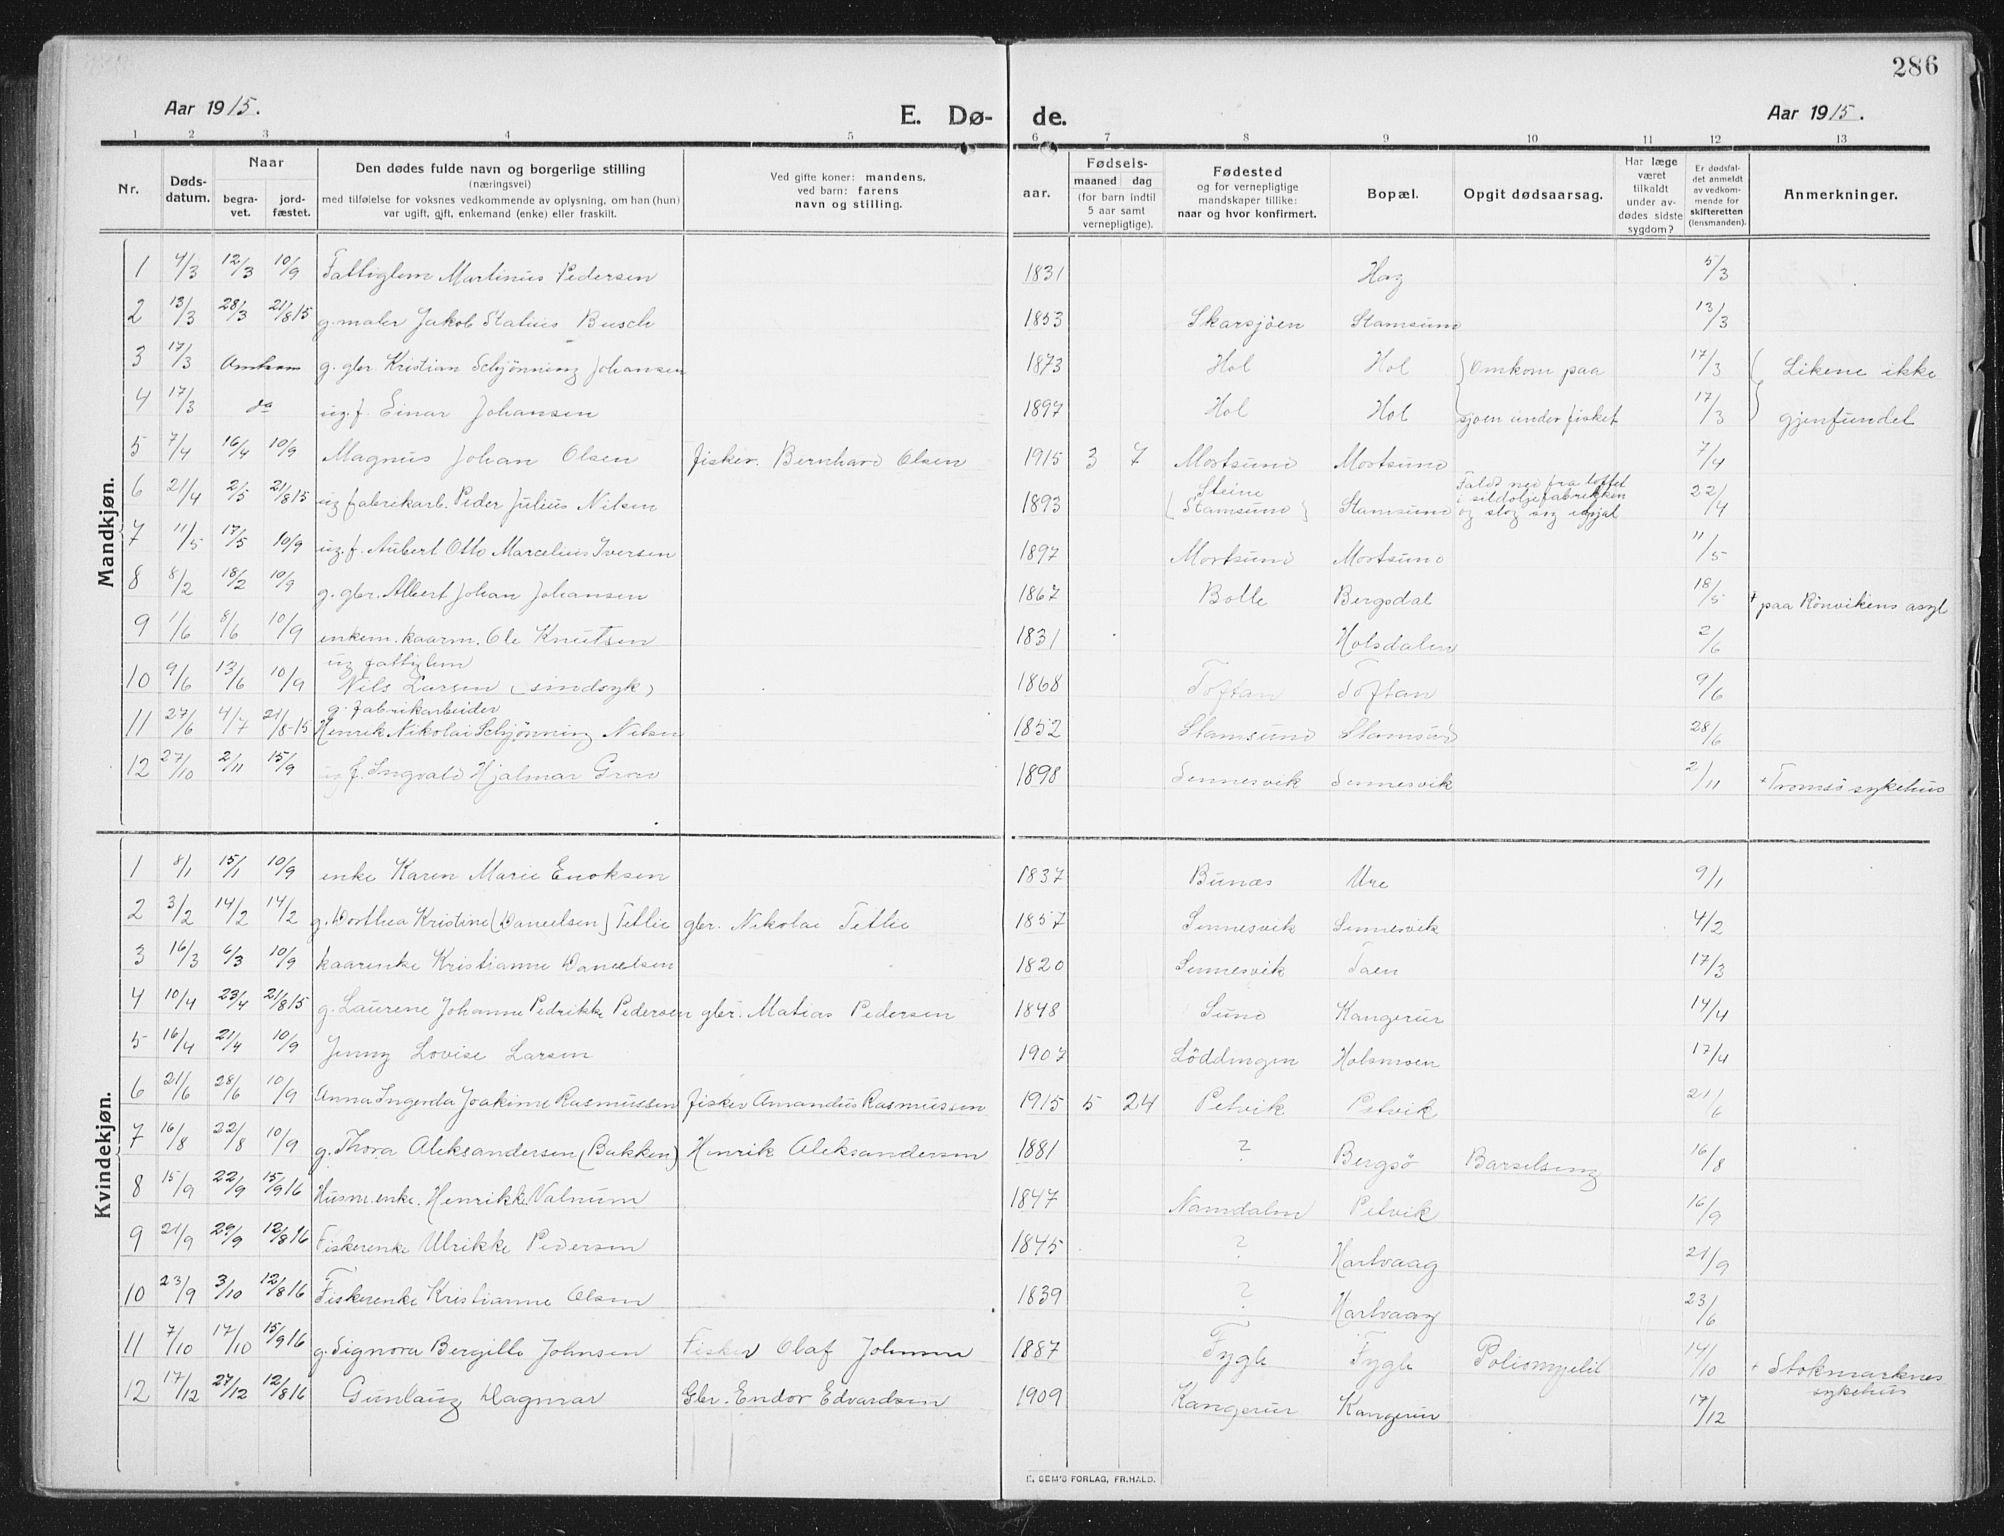 286
Aar 1915.
E. Dø- de.
Aar 1915.
1 2 3 4 5 6 7 8 9 10 11 12 13
Nr.
Døds-
datum.
Naar
begra-
vet.
jord-
fæstet.
Den dødes fulde navn og borgerlige stilling
(næringsvei)
med tilføielse for voksnes vedkommende av oplysning, om han (hun)
var ugift, gift, enkemand (enke) eller fraskilt.
Ved gifte koner: mandens.
ved barn: farens
navn og stilling.
aar.
Fødsels-
maaned dag
(for barn indtil
5 aar samt
vernepligtige).
Fødested
og for vernepligtige
mandskaper tillike:
naar og hvor konfirmert.
Bopæl.
Opgit dødsaarsag.
Har læge
været
tilkaldt
under av-
dødes sidste
sygdom?
Er dødsfal-
det anmeldt
av vedkom-
mende for
skifteretten
(lensmanden).
Anmerkninger.
Mandkjøn.
1 4/3 12/3 10/9 Fattiglem Martinus Pedersen 1831 Hag 5/3
2 13/3 28/3 21/8 15 g. maler Jakob Statius Busch 1853 Skarsjøen Stamsund 13/3
3 17/3 Omkom g. gbr. Kristian Schjønning Johansen 1873 Hol Hol Omkom paa 17/3 Likene ikke
4 17/3 do ug. f. Einar Johansen 1897 Hol Hol sjøen under fisket 17/3 gjenfundet
5 7/4 16/4 10/9 Magnus Johan Olsen fisker. Bernhard Olsen 1915 3 7 Mortsund Mortsund 7/4
6 21/4 2/5 21/8 15 ug fabrikarb. Peder Julius Nilsen 1893 (Steine Stamsund) Stamsund Faldt ned fra loftet
i sildoljefabrikken
og slog sig ihjel 22/4
7 11/5 17/5 10/9 ug. f. Aubert Otto Marcelius Iversen 1897 Mortsund Mortsund 11/5
8 8/2 18/2 10/9 g. gbr. Albert Johan Johansen 1867 Bolle Bergsdal 18/5 + paa Rönvikens asyl
9 1/6 8/6 10/9 enkem. kaarm. Ole Knutsen 1831 Holsdalen 2/6
ug fattiglem
10 9/6 13/6 10/9 Nils Larsen (sindsyk) 1868 Toftan Toftan 9/6
g. fabrikarbeider
11 27/6 4/7 21/8-15 Henrik Nikolai Schjønning Nilsen 1852 Stamsund Stamsund 28/6
12 27/10 2/11 15/9 ug f. Ingvald Hjalmar Grov 1898 Sennesvik Sennesvik 2/11 + Tromsö sykehus
Kvindekjøn.
1 8/1 15/1 10/9 enke Karen Marie Enoksen 1837 Bunæs Ure 9/1
2 3/2 14/2 14/2 g. Dorthea Kristine (Danielsen) Tetlie gbr. Nikolai Tetlie 1857 Sennesvik Sennesvik 4/2
3 16/3 6/3 10/9 kaarenke Kristianne Danielsen 1820 Sennesvik Taen 17/3
4 10/4 23/4 21/8 15 g. Laurene Johanne Pedrikke Pedersen gbr. Matias Pedersen 1848 Sund Kangerur 14/4
5 16/4 21/4 10/9 Jenny Lovise Larsen 1907 Löddingen Holsmoen 17/4
6 21/6 28/6 10/9 Anna Ingerda Joakime Rasmussen fisker Amandus Rasmussen 1915 5 24 Petvik Petvik 21/6
7 16/8 22/8 10/9 g. Thora Aleksandersen (Bakken) Henrik Aleksandersen 1881 ? Bergsö Barselseng 16/8
8 15/9 22/9 15/9 16 Husm.enke. Henrikke Valnum 1847 Namdalen Petvik 16/9
9 21/9 29/9 12/8 16 Fiskerenke Ulrikke Pedersen 1845 ? Hartvaag 21/9
10 23/9 3/10 12/8 16 Fiskerenke Kristianne Olsen 1839 ? Hartvaag 23/6
11 7/10 17/10 15/9 16 g. Signora Bergitte Johnsen Fisker Olaf Johnsen 1887 Fygle Fygle Poliomyelit 14/10 + Stokmarknes
sykehus
12 17/12 27/12 12/8 16 Gunlaug Dagmar Gbr. Endor Edvardsen 1909 Kangerur Kangerur 17/12
E. SEM'S FORLAG, FR.HALD.